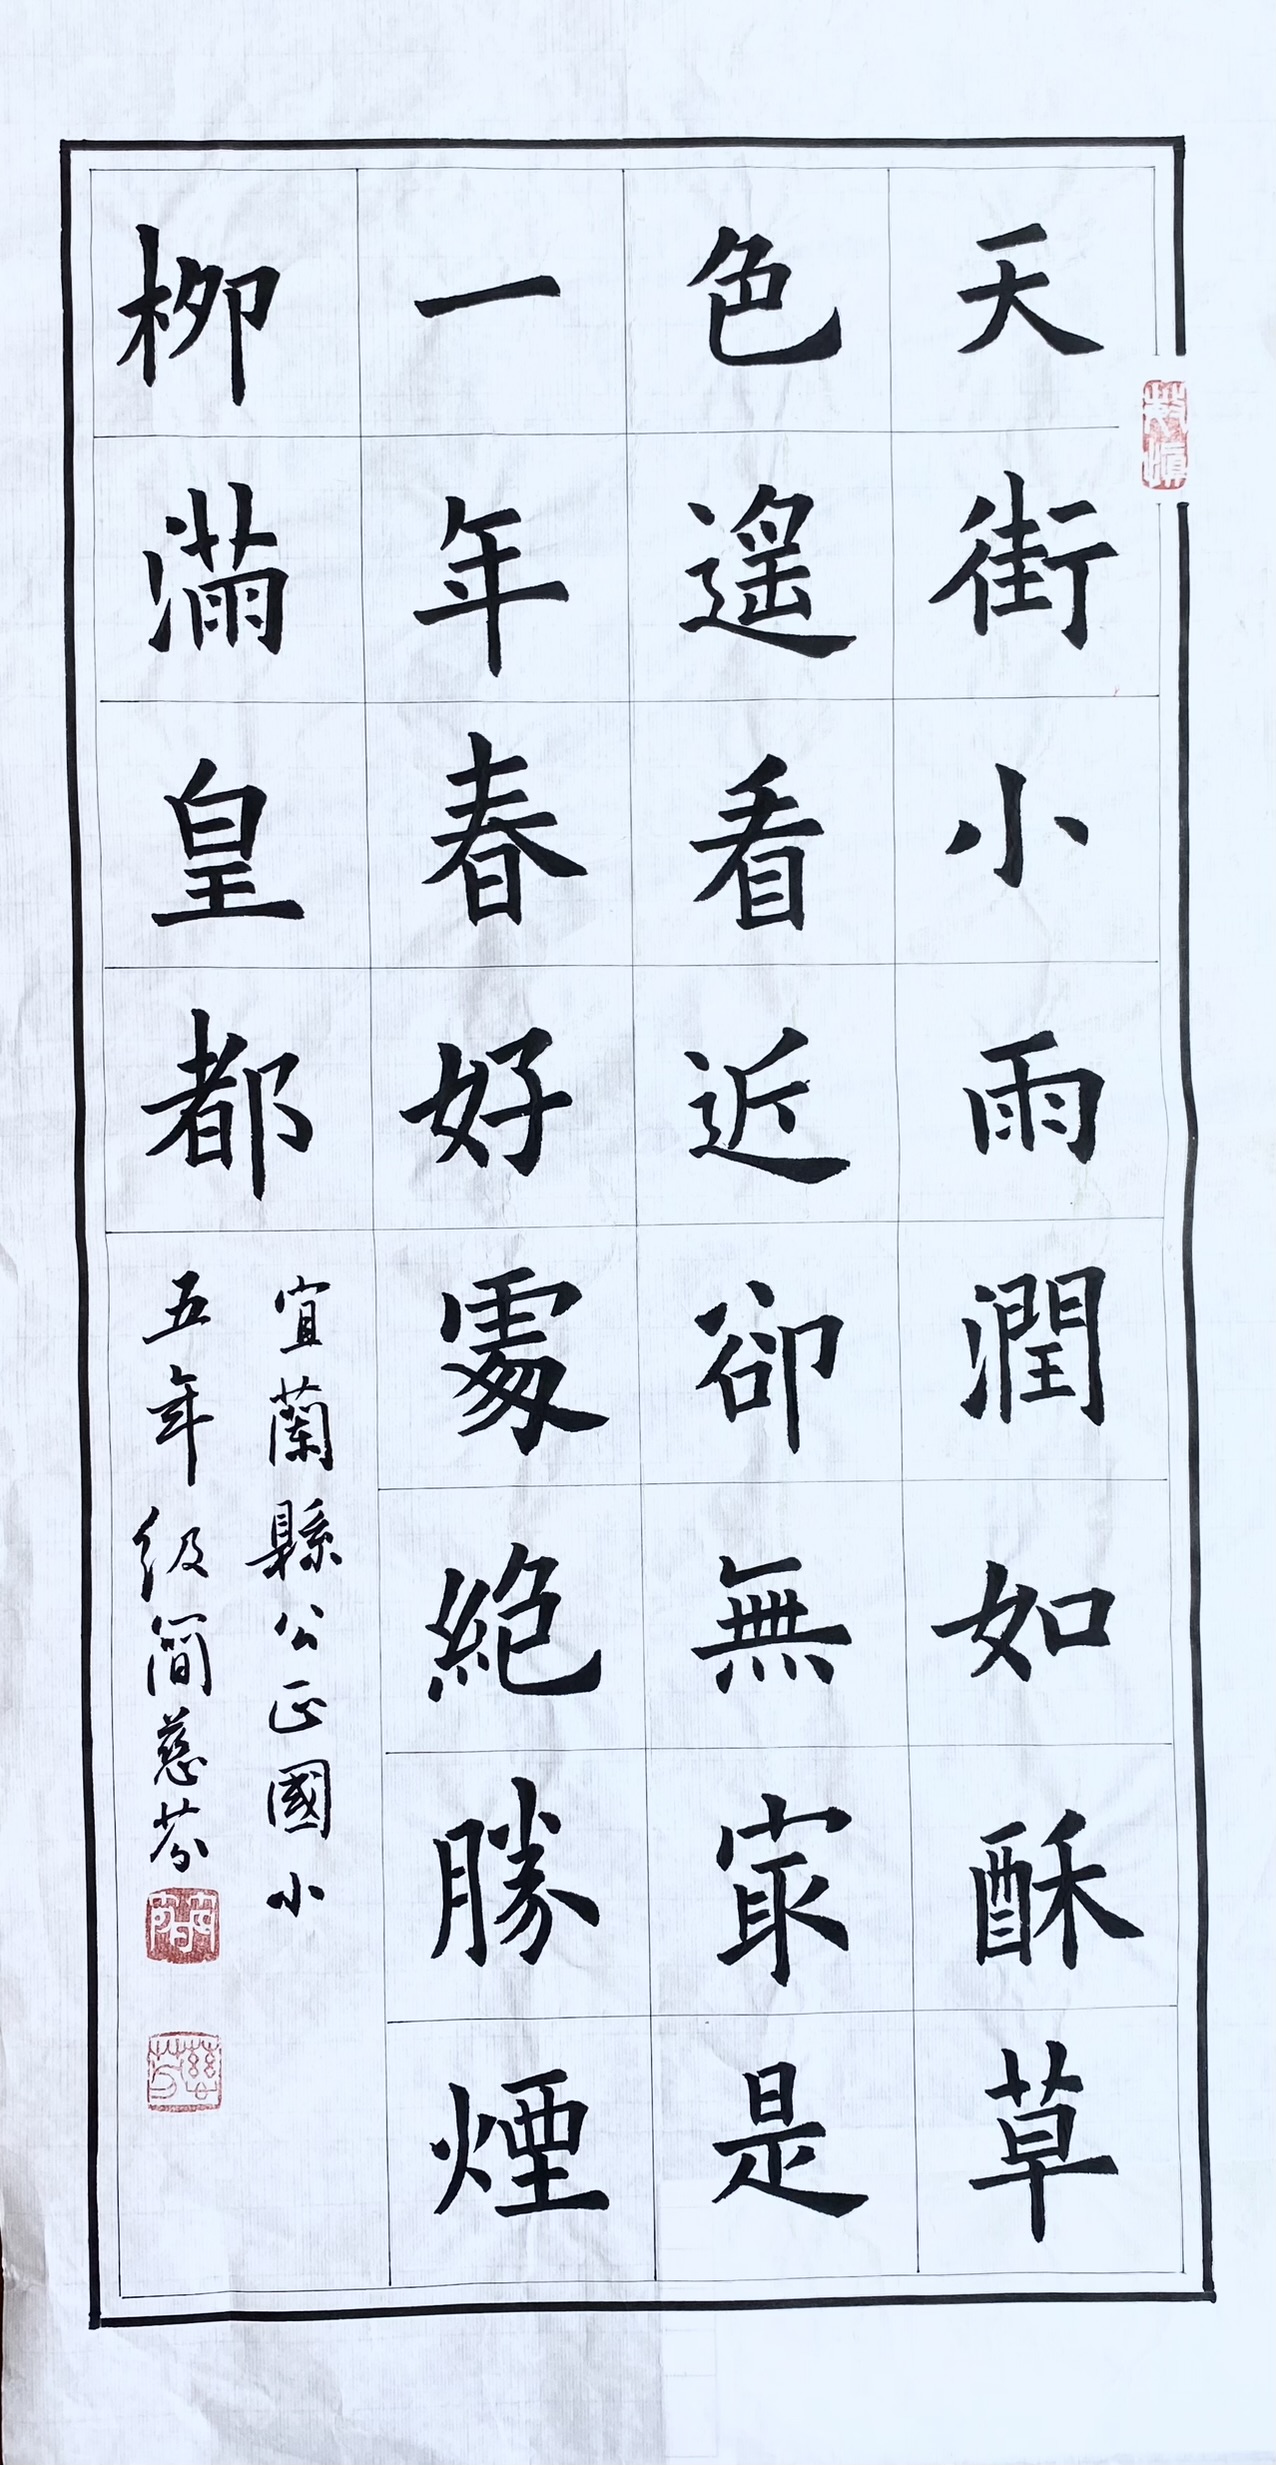 天街小雨潤如酥草
色遙看近卻無㝡是
一年春好處絕勝煙
柳滿皇都
宜蘭縣公正國小
五年級簡慈芬